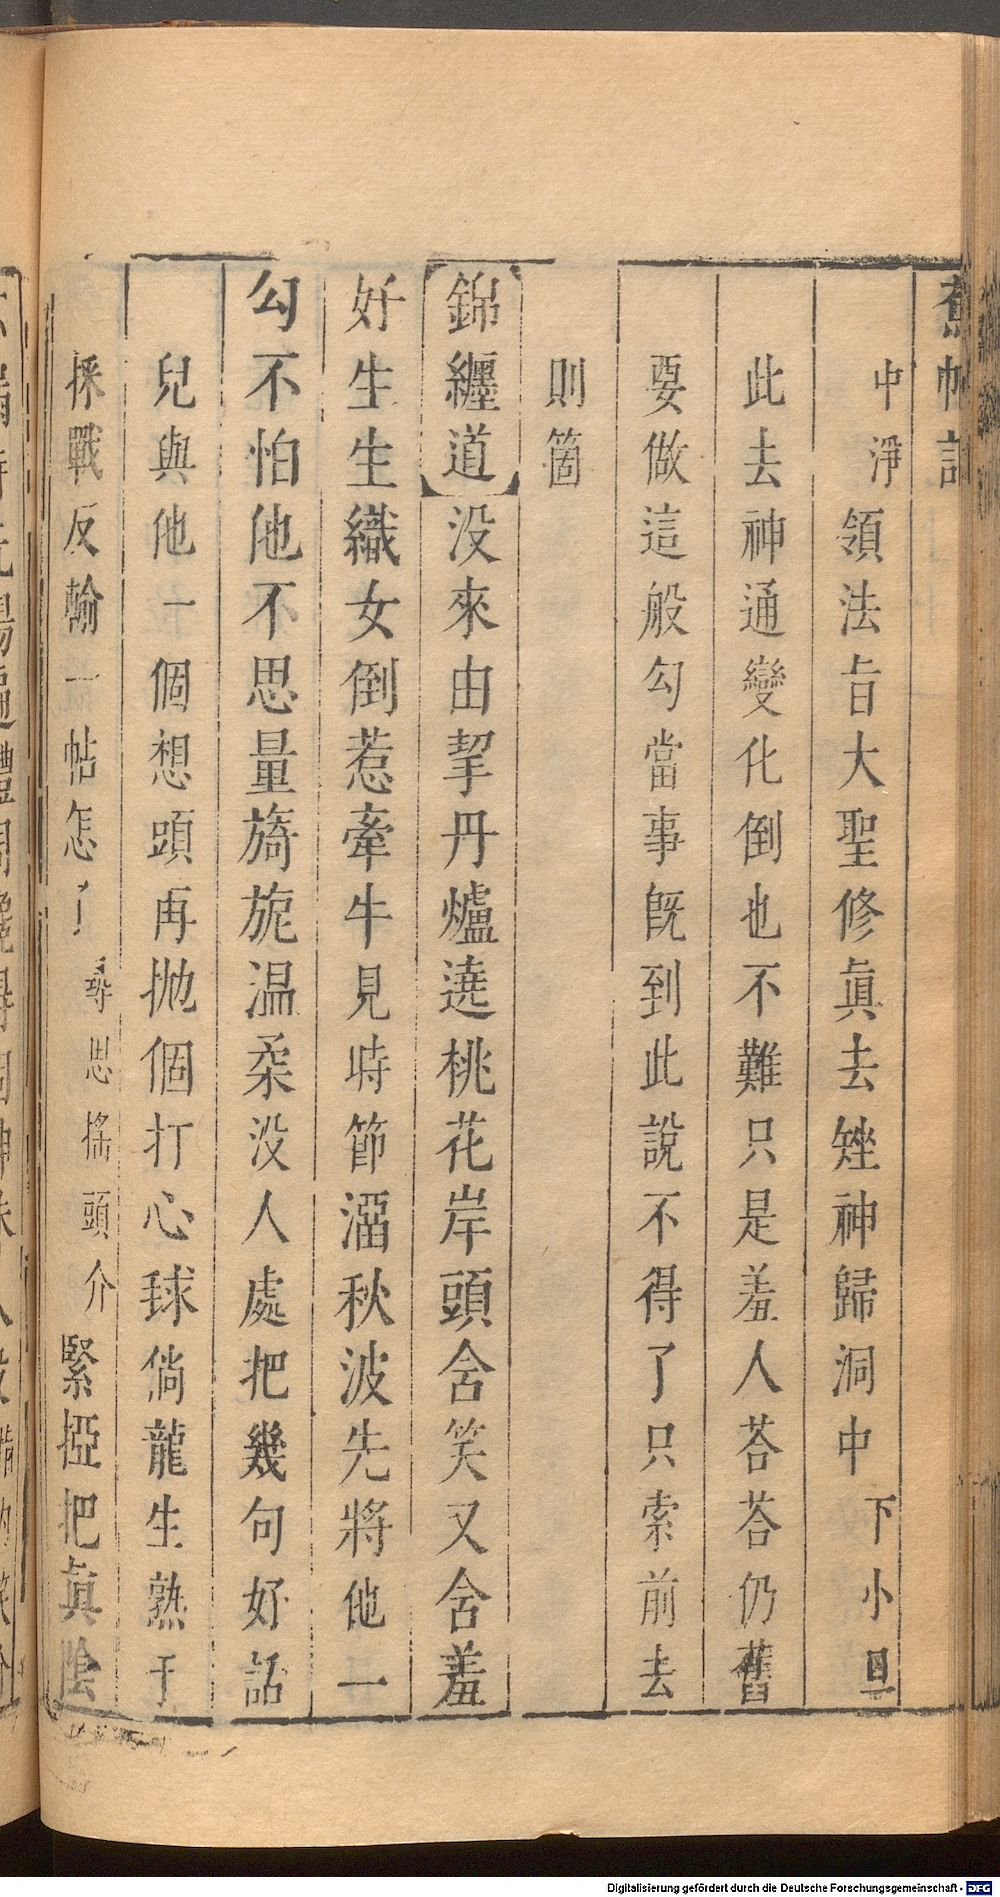 蕉帕記
中淨領法旨大聖修眞去矬神神歸洞中下小旦
此去神通變化倒也不難只是羞人荅荅仍舊
要做這般勾當事旣到此說不得了只索前去
則箇
錦纏道没來由挈丹爐遶桃花岸頭含笑又含羞
好生生織女倒惹牽牛見時節溜秋波先將他一
勾不怕他不思量旖旎温柔没人處把幾句好話
兒與他一個想頭再抛個打心毬倘龍生熟于
採戰反輸一帖怎了尋思搖頭介緊掗把眞陰
Digitalisierung gefördert durch die Deutsche Forschungsgemeinschaft - DFG